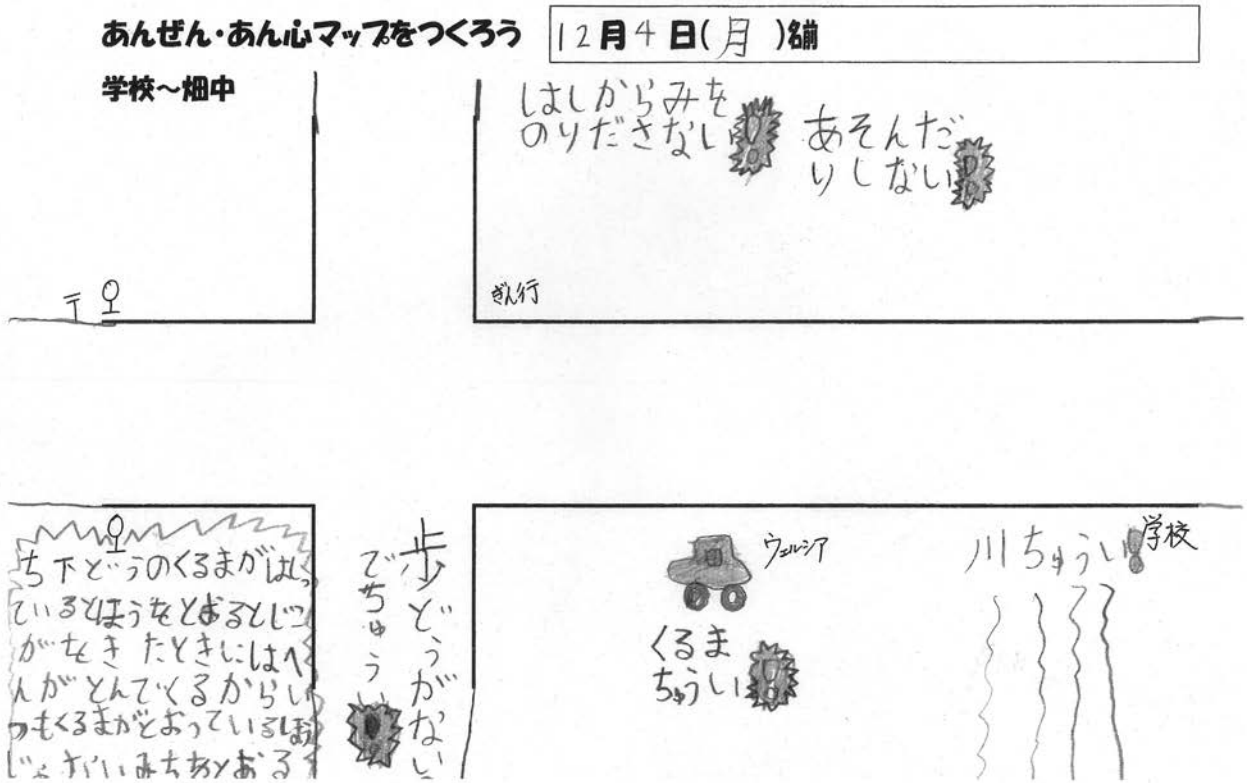 あんぜん・あん心マップをつくろう
12月4日(月)名前
学校～畑中
はしからみを
のりださない!
あそんだ
りしない!
〒
ぎん行
ち下どうのくるまがはしっ
ているとほうをとおるとじこ
がおきたときにはへ
んがとんでくるからい
つもくるまがとおっているほう
じゃない みちをとおる
歩どうがない
でちゅう
ウェルシア
くるま
ちゅうい!
川ちゅうい!
学校